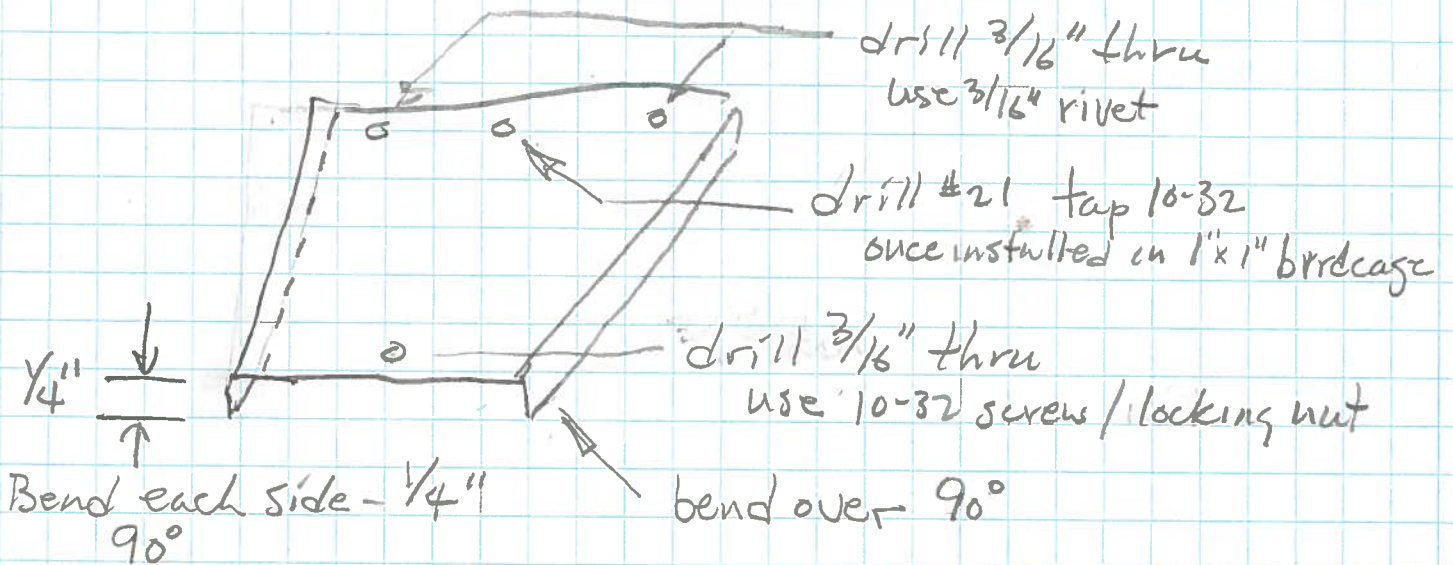 drill 3/16" thru
use 3/16" rivet
drill #21 tap 10-32
once installed in 1"x1" birdcage
drill 3/16" thru
use 10-32 screw / locking nut
1/4"
Bend each side - 1/4"
90°
bend over 90°